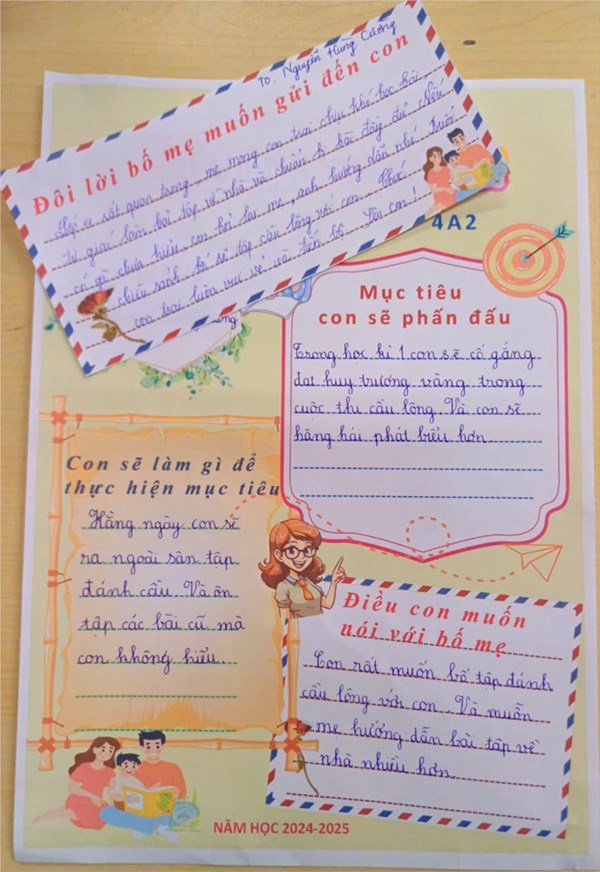 TO. Nguyễn Hùng Cường
Đôi lời bố mẹ muốn gửi đến con
Lớp 4 rất quan trọng, mẹ mong con trai chịu khó học bài
tự giác làm bài tập về nhà và chuẩn bị bài đầy đủ. Nếu
có gì chưa hiểu con hỏi lại mẹ, anh hướng dẫn nhé. Buổi
chiều bố sẽ tập cầu lông với con. Chúc
con trai luôn vui vẻ và tiến bộ. Yêu con!
4A2
Mục tiêu
con sẽ phấn đấu
Trong học kì 1 con sẽ cố gắng
đạt huy trương vàng trong
cuộc thi cầu lông. Và con sẽ
hăng hái phát biểu hơn
Con sẽ làm gì để
thực hiện mục tiêu
Hằng ngày con sẽ
ra ngoài sân tập
đánh cầu. Và ôn
tập các bài cũ mà
con không hiểu.
Điều con muốn
nói với bố mẹ
Con rất muốn bố tập đánh
cầu lông với con. Và muốn
mẹ hướng dẫn bài tập về
nhà nhiều hơn
NĂM HỌC 2024-2025